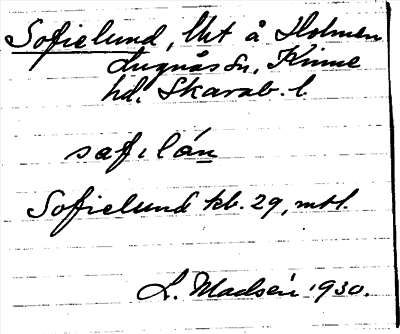 Sofielund, lht å Holmen
Lugnås sn, Kinne
hd. Skarab. l.
sɑfɩlán
Sofielund kb. 29, mtl.
L. Madsén 1930.